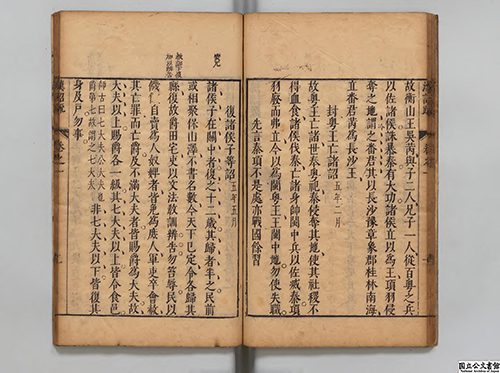 故衡山王吳芮與子二人兄子一人從百粵之兵
以佐諸侯誅暴秦有大功諸侯立以爲王項羽侵
奪之地謂之番君其以長沙豫章象郡桂林南海
立番君芮爲長沙王
封粵王亡諸詔 五年二月
故粵王亡諸世奉粵祀秦侵奪其地使其社稷不
得血食諸侯伐秦亡諸身帥閩中兵以佐滅秦項
羽廢而弗立今以爲閩粵王王閩中地勿使失職
先言秦項不是處亦戰國餘習
復諸侯子等詔 五年五月
諸侯子在關中者復之十二歲其歸者半之民前
或相聚保山澤不書名數今天下已定令各歸其
縣復故爵田宅吏以文法教訓辨告勿笞辱民以
餓自賣爲人奴婢者皆免爲庶人軍吏卒會赦
其亡罪而亡爵及不滿大夫者皆賜爵爲大夫故
大夫以上賜爵各一級其七大夫以上皆令食邑
師古曰七大夫公大夫也
爵第七故謂之七大夫
非七大夫以下皆復其
身及戶勿事
卷之一
国立公文書館
National Archives of Japan